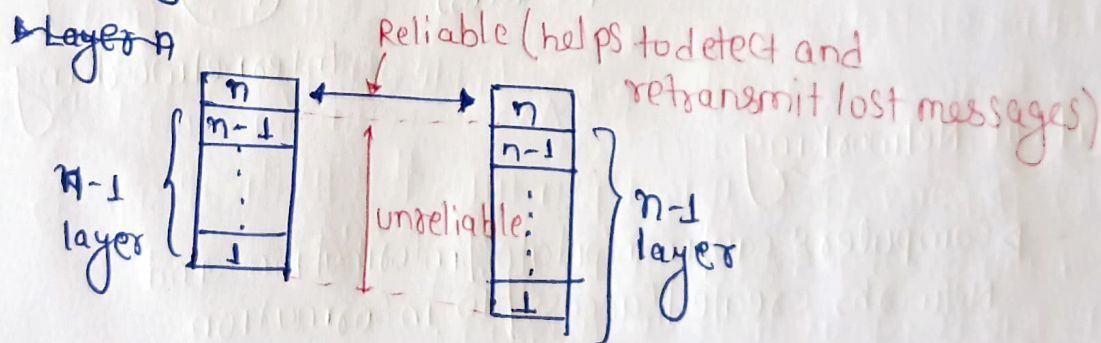 Layer A
Reliable (helps to detect and
retransmit lost messages)
n
n-1
1
n-1
layer
unreliable
n
n-1
1
n-1
layer